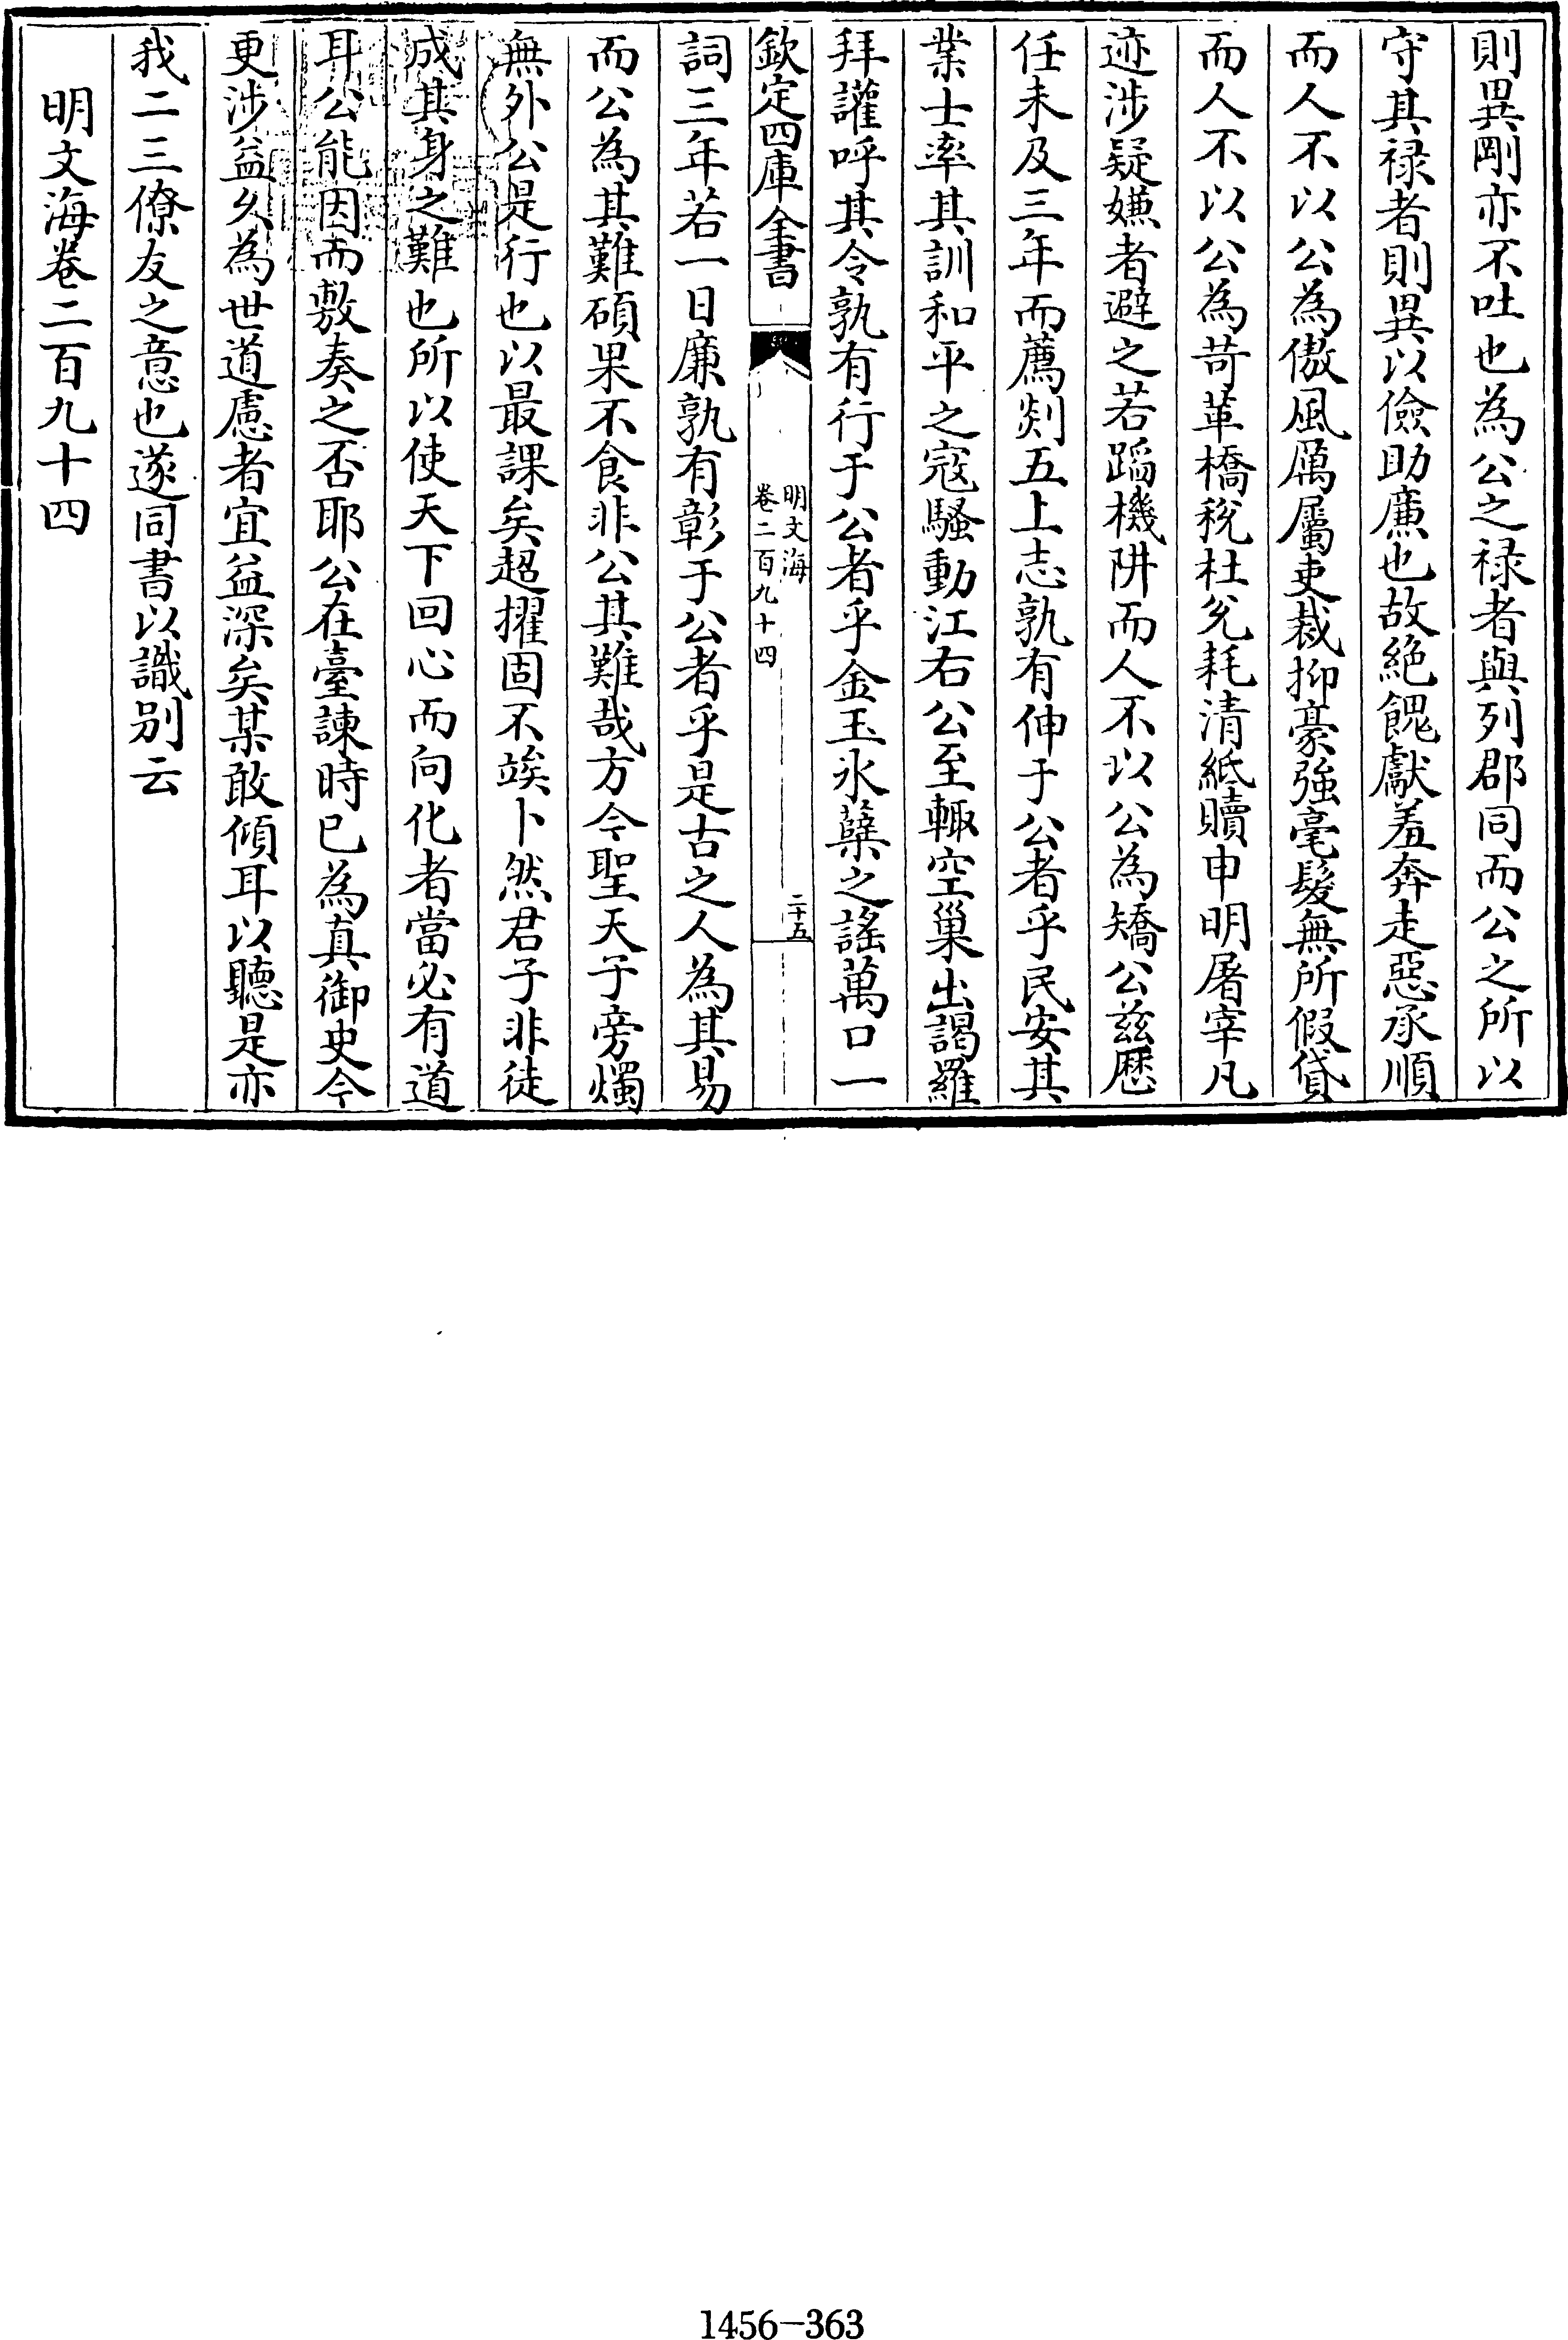 則異剛亦不吐也為公之禄者與列郡同而公之所以
守其禄者則異以儉助廉也故絶餽獻羞奔走惡承順
而人不以公為傲風厲屬吏裁抑豪強毫髮無所假貸
而人不以公為苛革橋稅杜兊耗清紙贖申明屠宰凡
迹涉疑嫌者避之若蹈機阱而人不以公為矯公兹歴
任未及三年而薦剡五上志孰有伸于公者乎民安其
業士率其訓和平之寇騷動江右公至輙空巢出謁羅
拜讙呼其令孰有行于公者乎金玉氷蘖之謠萬口一
欽定四庫全書
明文海
卷二百九十四
二十五
詞三年若一日廉孰有彰于公者乎是古之人為其易
而公為其難碩果不食非公其難哉方今聖天子旁燭
無外公是行也以最課矣超擢固不竢卜然君子非徒
成其身之難也所以使天下回心而向化者當必有道
耳公能因而敷奏之否耶公在臺諫時已為真御史今
更涉益乆為世道慮者宜益深矣某敢傾耳以聽是亦
我二三僚友之意也遂同書以識别云
明文海卷二百九十四
1456-363